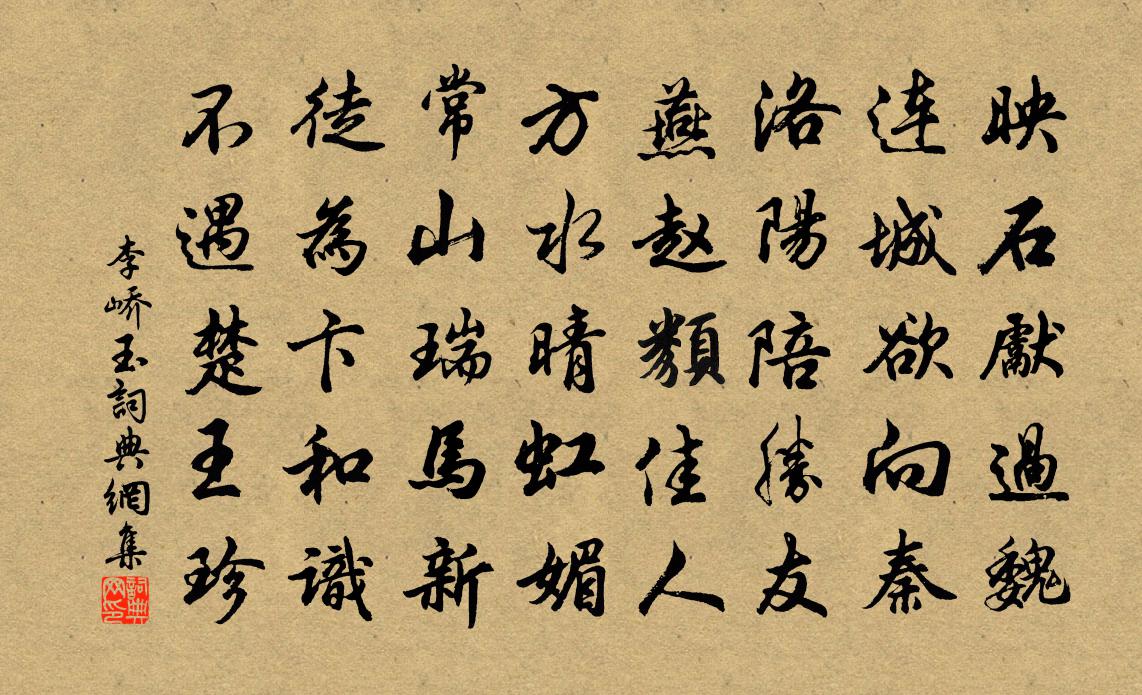 映石獻過魏
連城欲向秦
洛陽陪勝友
燕趙類佳人
方水晴虹媚
常山瑞馬新
徒為卞和識
不遇楚王珍
李嶠玉詞典網集
詞典網印